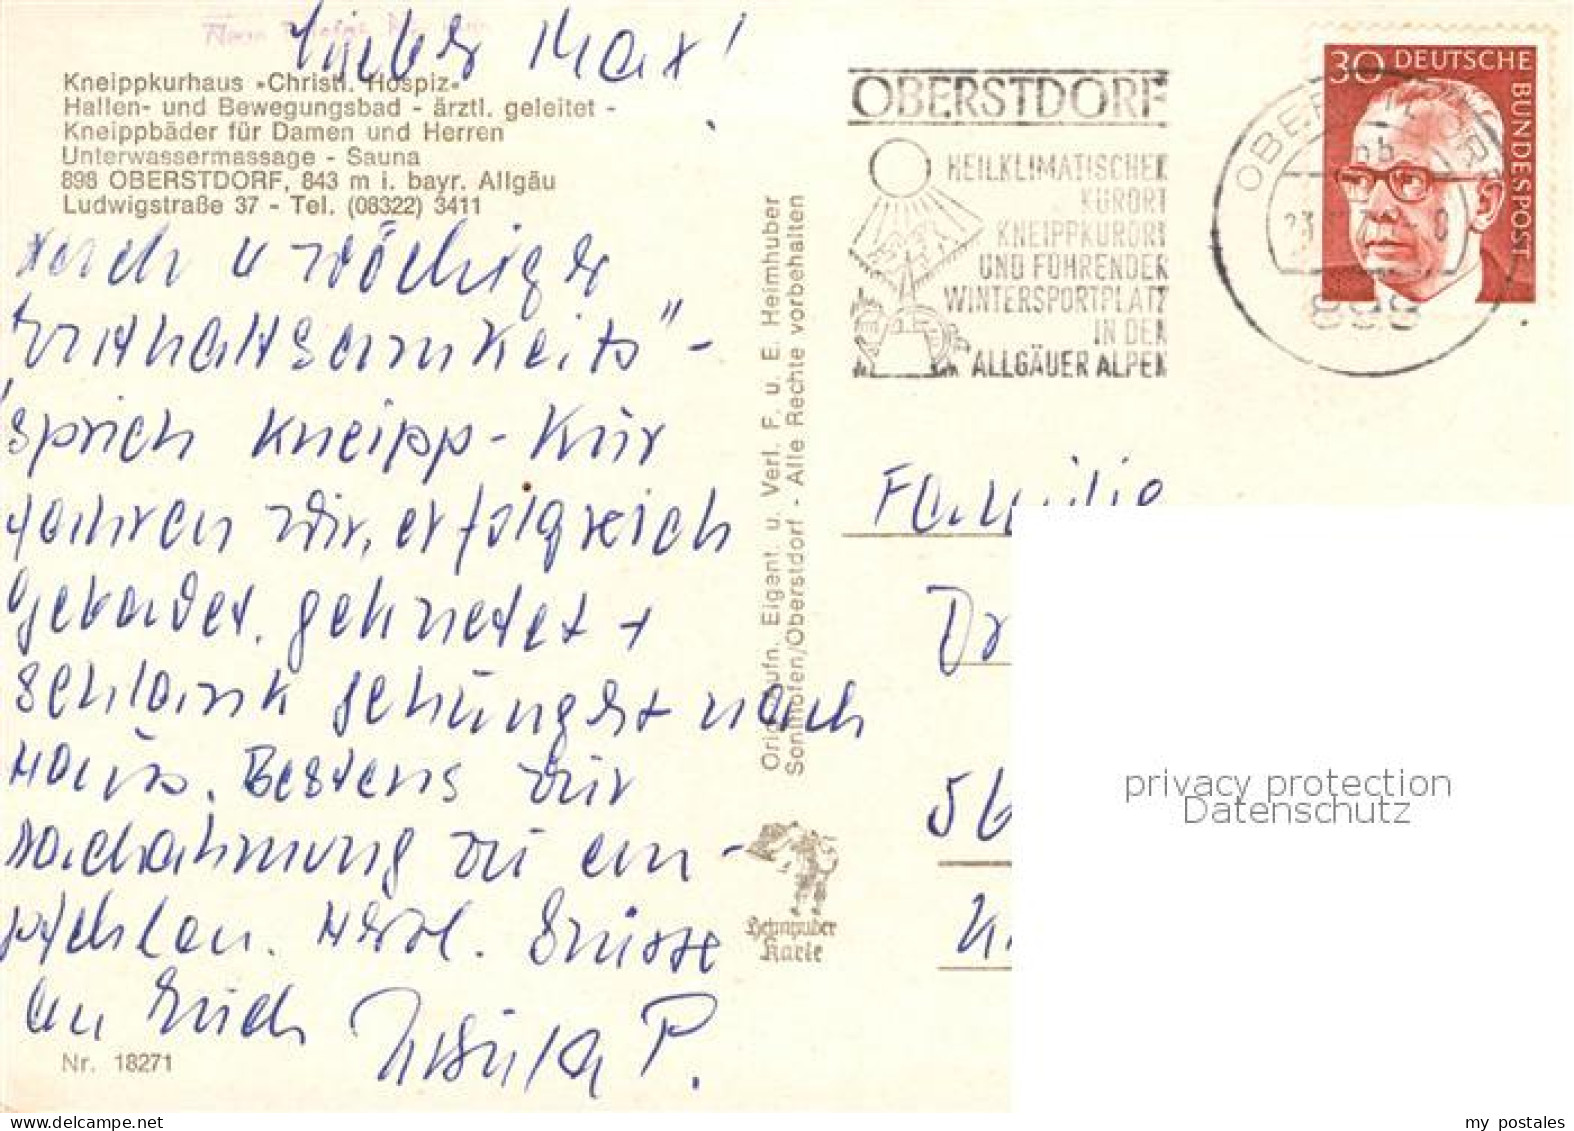 Lieber Max!
Kneippkurhaus »Christl. Hospiz«
Hallen- und Bewegungsbad - ärztl. geleitet -
Kneippbäder für Damen und Herren
Unterwassermassage - Sauna
898 OBERSTDORF, 843 m i. bayr. Allgäu
Ludwigstraße 37 - Tel. (08322) 3411
Nach 4 wöchiger
"Enthaltsamkeits"-
sprich Kneipp-Kur
fahren wir, erfolgreich
gebadet, geknetet +
schlank gehungert nach
Haus. Bestens zur
Nachahmung zu em-
pfehlen. Herzl. Grüsse
an Euch Ursula P.
Nr. 18271
Orig. Aufn. Eigent. u. Verl. F. u. E. Heimhuber
Sonthofen/Oberstdorf - Alle Rechte vorbehalten
Heimhuber
Karte
OBERSTDORF
HEILKLIMATISCHER
KURORT
KNEIPPKURORT
UND FÜHRENDER
WINTERSPORTPLATZ
IN DEN
ALLGÄUER ALPEN
OBERSTDORF
898
30 DEUTSCHE
BUNDESPOST
Familie
Dr
56
privacy protection
Datenschutz
my postales